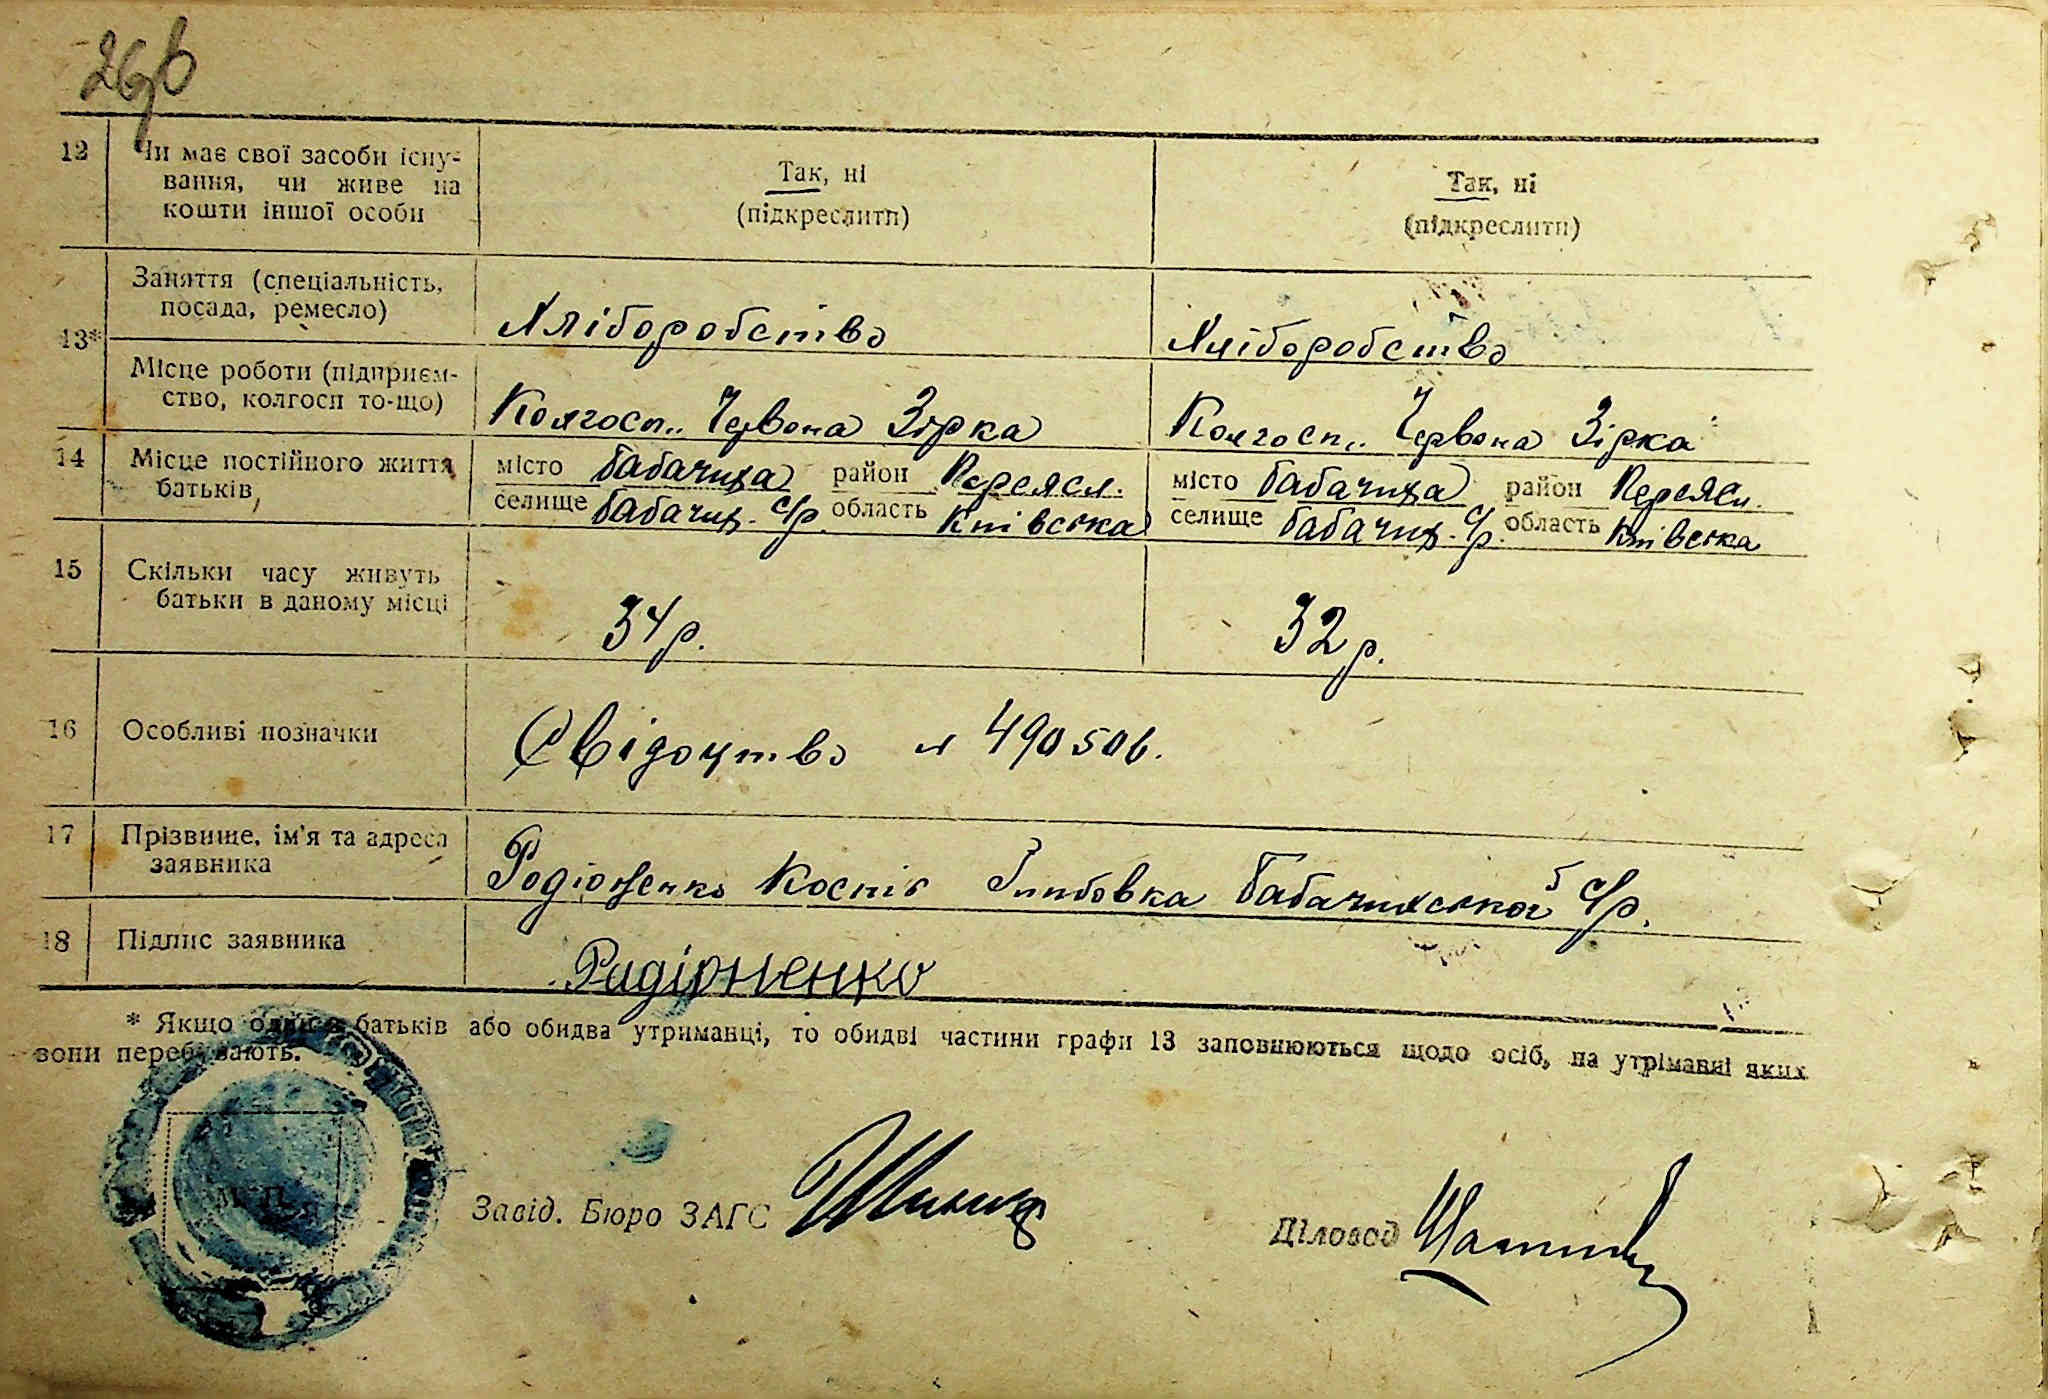 12 Чи має свої засоби існу-
вання, чи живе на
кошти іншої особи
Так, ні
(підкреслити)
Так, ні
(підкреслити)
13*
Заняття (спеціальність,
посада, ремесло)
Хліборобство
Хліборобство
Місце роботи (підприєм-
ство, колгосп то-що)
Колгосп „ Червона Зірка
Колгосп „ Червона Зірка"
14 Місце постійного життя
батьків
місто Бабачиха район Переясл.
селище Бабачих. С/р. область Київська
місто Бабачиха район Переясл.
селище Бабачих. С/р. область Київська
15 Скільки часу живуть
батьки в даному місці
34 р.
32 р.
16 Особливі позначки
Свідоцтво № 490506.
17 Прізвище, ім'я та адреса
заявника
Родіоненко Бабачихської С/р.
18 Підпис заявника
Радіоненко
* Якщо один з батьків або обидва утриманці, то обидві частини графи 13 заповнюються щодо осіб, на утрiманні яких
вони перебувають.
М. П.
Завід. Бюро ЗАГС
Діловод